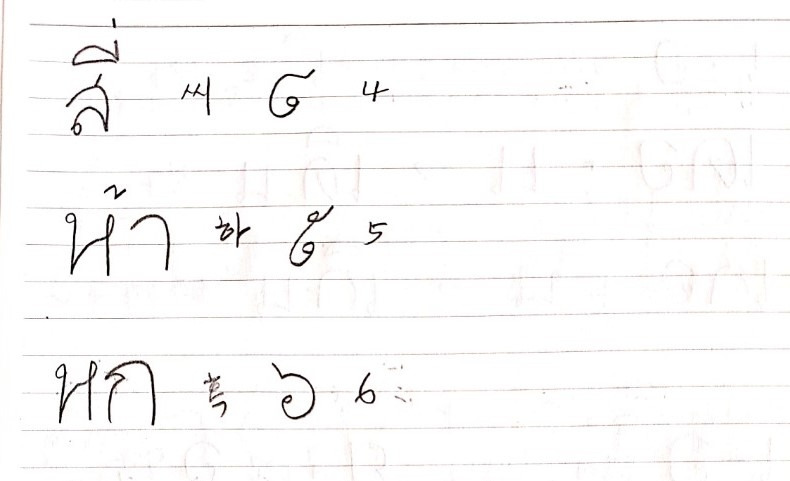 สี่ 씨 ๔ 4
ห้า 하 ๕ 5
หก 혹 ๖ 6